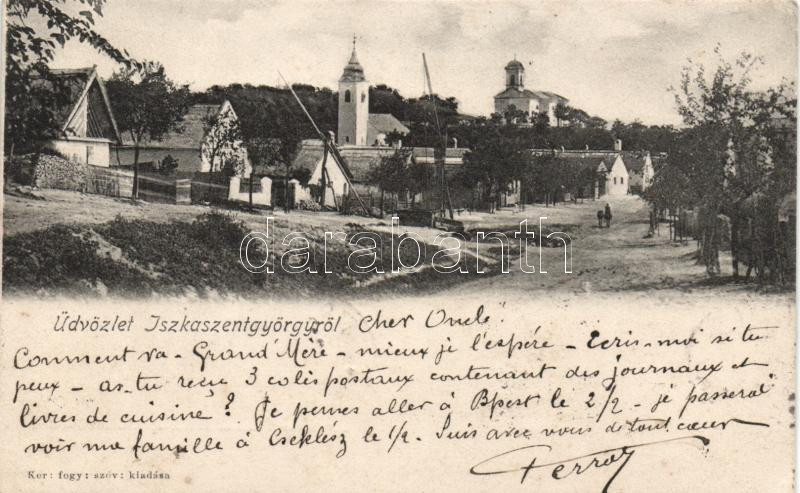 darabanth.com
Üdvözlet Iszkaszentgyörgyről Cher Oncle
Comment va - Grand'Mére - mieux je l'espére - Ecris-moi si tu
peux - as-tu reçu 3 colis postaux contenant des journaux et
livres de cuisine? Je penses aller à Bpest le 2/2 - je passerai
voir ma famille à Cseklész le 1/2. Suis avec vous de tout cœur
Ker: fogy: szöv: kiadása